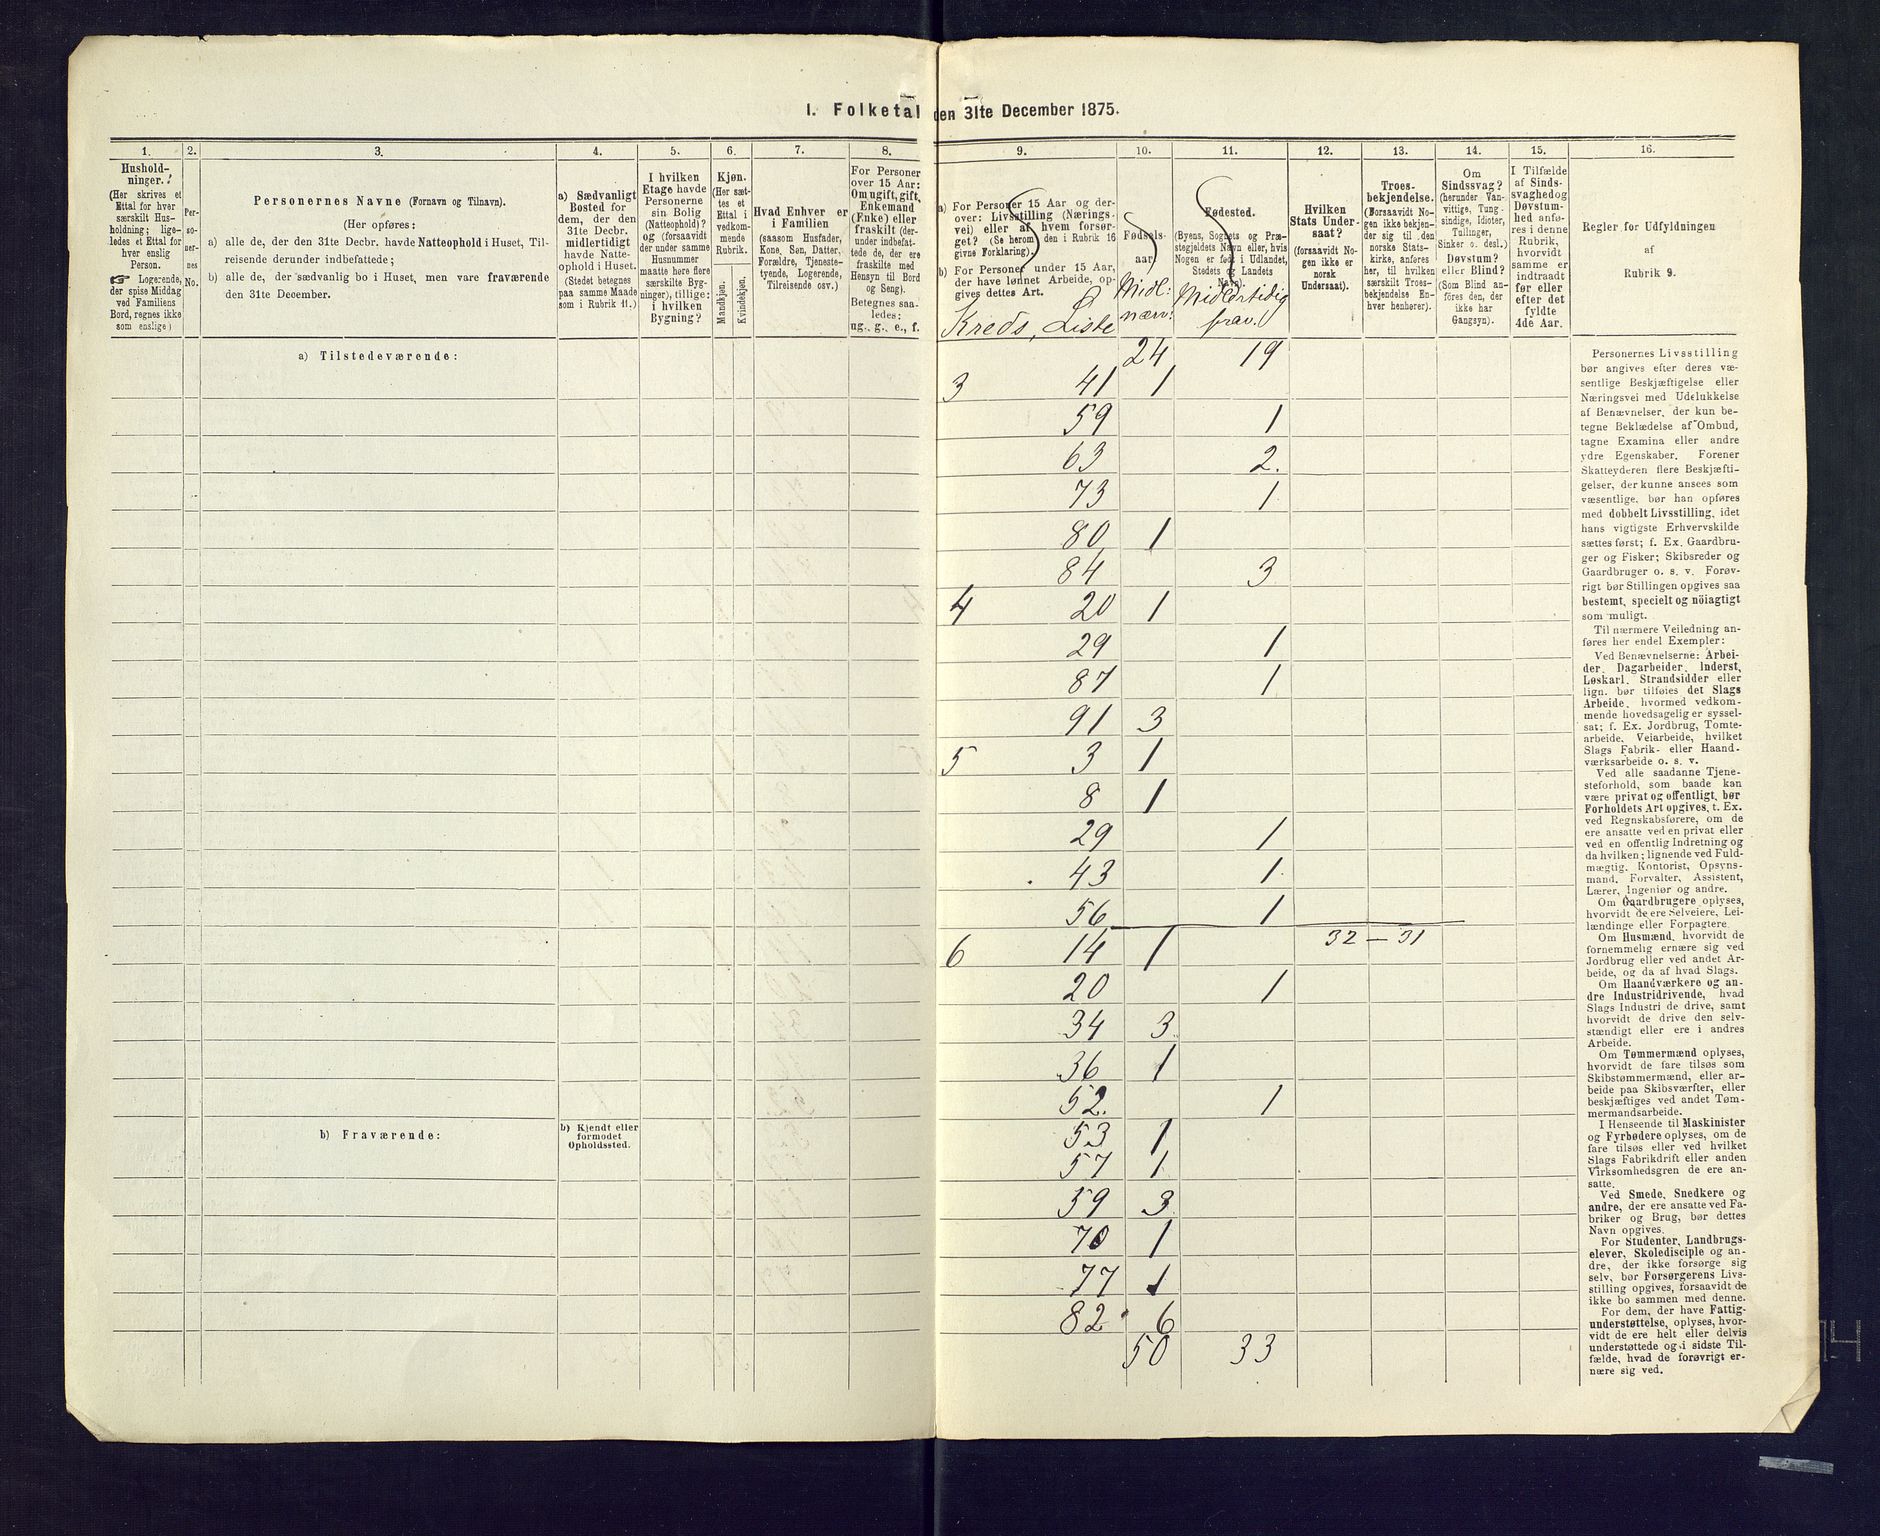 I. Folketal den 31te December 1875.
1.
2.
3.
4.
5.
6.
7.
8.
9.
10.
11.
12.
13.
14.
15.
16.
Hushold-
ninger.
(Her skrives et
Ettal for hver
særskilt Hus-
holdning; lige-
ledes et Ettal for
hver enslig
Person.
☞ Logerende,
der spise Middag
ved Familiens
Bord, regnes ikke
som enslige)
Per-
so-
ner-
nes
No.
Personernes Navne (Fornavn og Tilnavn).
(Her opføres:
a) alle de, der den 31te Decbr. havde Natteophold i Huset, Til-
reisende derunder indbefattede;
b) alle de, der sædvanlig bo i Huset, men vare fraværende
den 31te December.
a) Sædvanligt
Bosted for
dem, der den
31te Decbr.
midlertidigt
havde Natte-
ophold i Huset.
(Stedet betegnes
paa samme Maade
som i Rubrik 11.)
I hvilken
Etage havde
Personerne
sin Bolig
(Natteophold)?
og (forsaavidt
der under samme
Husnummer
maatte høre flere
særskilte Byg-
ninger), tillige:
i hvilken
Bygning?
Kjøn.
(Her sæt-
tes et
Ettal i
vedkom-
mende
Rubrik.
Mandkjøn.
Kvindekjøn.
Hvad Enhver er
i Familien
(saasom Husfader,
Kone, Søn, Datter,
Forældre, Tjeneste-
tyende, Logerende,
Tilreisende osv.)
For Personer
over 15 Aar:
Om ugift, gift,
Enkemand
(Enke) eller
fraskilt (der-
under indbefat-
tede de, der ere
fraskilte med
Hensyn til Bord
og Seng).
Betegnes saa-
ledes:
ug., g., e., f.
a) For Personer 15 Aar og der-
over: Livsstilling (Nærings-
vei) eller af hvem forsør-
get? (Se herom den i Rubrik 16
givne Forklaring).
b) For Personer under 15 Aar,
der have lønnet Arbeide, op-
gives dettes Art.
Kreds, Liste
Fødsels-
aar
Midl:
nærv:
Fødested.
(Byens, Sognets og Præ-
stegjeldets Navn eller, hvis
Nogen er født i Udlandet,
Stedets og Landets
Navn).
Midlertidig
frav.
Hvilken
Stats Under-
saat?
(forsaavidt No-
gen ikke er
norsk
Undersaat).
Troes-
bekjendelse.
(Forsaavidt No-
gen ikke bekjen-
der sig til den
norske Stats-
kirke, anføres
her, til hvilken
særskilt Troes-
bekjendelse En-
hver henhører).
Om
Sindssvag?
(herunder Van-
vittige, Tung-
sindige, Idioter,
Tullinger,
Sinker o. desl.)
Døvstum?
eller Blind?
(Som Blind an-
føres den, der
ikke har
Gangsyn).
I Tilfælde
af Sinds-
svaghed og
Døvstum-
hed anfø-
res i denne
Rubrik,
hvorvidt
samme er
indtraadt
før eller
efter det
fyldte
4de Aar.
Regler for Udfyldningen
af
Rubrik 9.
a) Tilstedeværende:
24 19
3 41 1
59 1
63 2.
73 1
80 1
84 3
4 20 1
29 1
87 1
91 3
5 3 1
8 1
29 1
43 1
56 1
6 14 1 32 — 31
20 1
34 3
36 1
52. 1
b) Fraværende:
b) Kjendt eller
formodet
Opholdssted.
53 1
57 1
59 3
70 1
77 1
82 6
50 33
Personernes Livsstilling
bør angives efter deres væ-
sentlige Beskjæftigelse eller
Næringsvei med Udelukkelse
af Benævnelser, der kun be-
tegne Beklædelse af Ombud,
tagne Examina eller andre
ydre Egenskaber. Forener
Skatteyderen flere Beskjæfti-
gelser, der kunne ansees som
væsentlige, bør han opføres
med dobbelt Livsstilling, idet
hans vigtigste Erhvervskilde
sættes først; f. Ex. Gaardbru-
ger og Fisker; Skibsreder og
Gaardbruger o. s. v. Forøv-
rigt bør Stillingen opgives saa
bestemt, specielt og nöiagtigt
som muligt.
Til nærmere Veiledning an-
føres her endel Exempler:
Ved Benævnelserne: Arbei-
der, Dagarbeider, Inderst,
Løskarl, Strandsidder eller
lign. bør tilføies det Slags
Arbeide, hvormed vedkom-
mende hovedsagelig er syssel-
sat; f. Ex. Jordbrug, Tomte-
arbeide, Veiarbeide, hvilket
Slags Fabrik- eller Haand-
værksarbeide o. s. v.
Ved alle saadanne Tjene-
steforhold, som baade kan
være privat og offentligt, bør
Forholdets Art opgives, t. Ex.
ved Regnskabsførere, om de
ere ansatte ved en privat eller
ved en offentlig Indretning og
da hvilken; lignende ved Fuld-
mægtig, Kontorist, Opsyns-
mand, Forvalter, Assistent,
Lærer, Ingeniør og andre.
Om Gaardbrugere oplyses,
hvorvidt de ere Selveiere, Lei-
lændinge eller Forpagtere.
Om Husmænd, hvorvidt de
fornemmelig ernære sig ved
Jordbrug eller ved andet Ar-
beide, og da af hvad Slags.
Om Haandværkere og an-
dre Industridrivende, hvad
Slags Industri de drive, samt
hvorvidt de drive den selv-
stændigt eller ere i andres
Arbeide.
Om Tømmermænd oplyses,
hvorvidt de fare tilsøs som
Skibstømmermænd, eller ar-
beide paa Skibsværfter, eller
beskjæftiges ved andet Tøm-
mermandsarbeide.
I Henseende til Maskinister
og Fyrbødere oplyses, om de
fare tilsøs eller ved hvilket
Slags Fabrikdrift eller anden
Virksomhedsgren de ere an-
satte.
Ved Smede, Snedkere og
andre, der ere ansatte ved Fa-
briker og Brug, bør dettes
Navn opgives.
For Studenter, Landbrugs-
elever, Skoledisciple og an-
dre, der ikke forsørge sig
selv, bør Forsørgerens Livs-
stilling opgives, forsaavidt de
ikke bo sammen med denne.
For dem, der have Fattig-
understøttelse, oplyses, hvor-
vidt de ere helt eller delvis
understøttede og i sidste Til-
fælde, hvad de forøvrigt er-
nære sig ved.